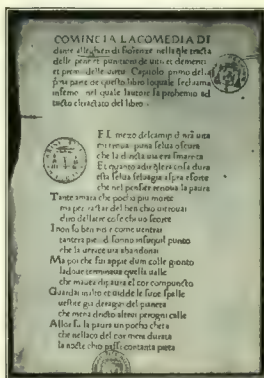 COMINCIA LA COMEDIA DI
dante alleghieri di fiorenze nella q̄le tracta
delle pene et punitioni de uitii et demeriti
et premii delle uirtu Capitolo primo della
parte de questo libro loquale sechiama
inferno nel quale lautore fa prohemio ad
tucto eltractato del libro
EL mezo delcamin
mi trouai p una selua oscura
che la uia era smarrita
Et quanto a dir cosa dura
esta selua seluagia aspra eforte
che nel pensier renoua la paura
Tante amara che pocho piu morte
ma per del ben chio ui trouai
diro dellaltre cose chi uo scorte
I non so ben come uentrai
tantera pien di sonno punto
che la uia abandonai
Ma poi che fui appie dum colle gionto
ladoue terminaua quella ualle
che mauea dipaura el cor compuncto
Guardai in alto et uidde le sue spalle
uestite gia deragi del pianeta
che mena dricto altrui perogni calle
Allor fu la paura un pocho cheta
che nellaco del cor mera durata
la nocte chio passai contanta pieta